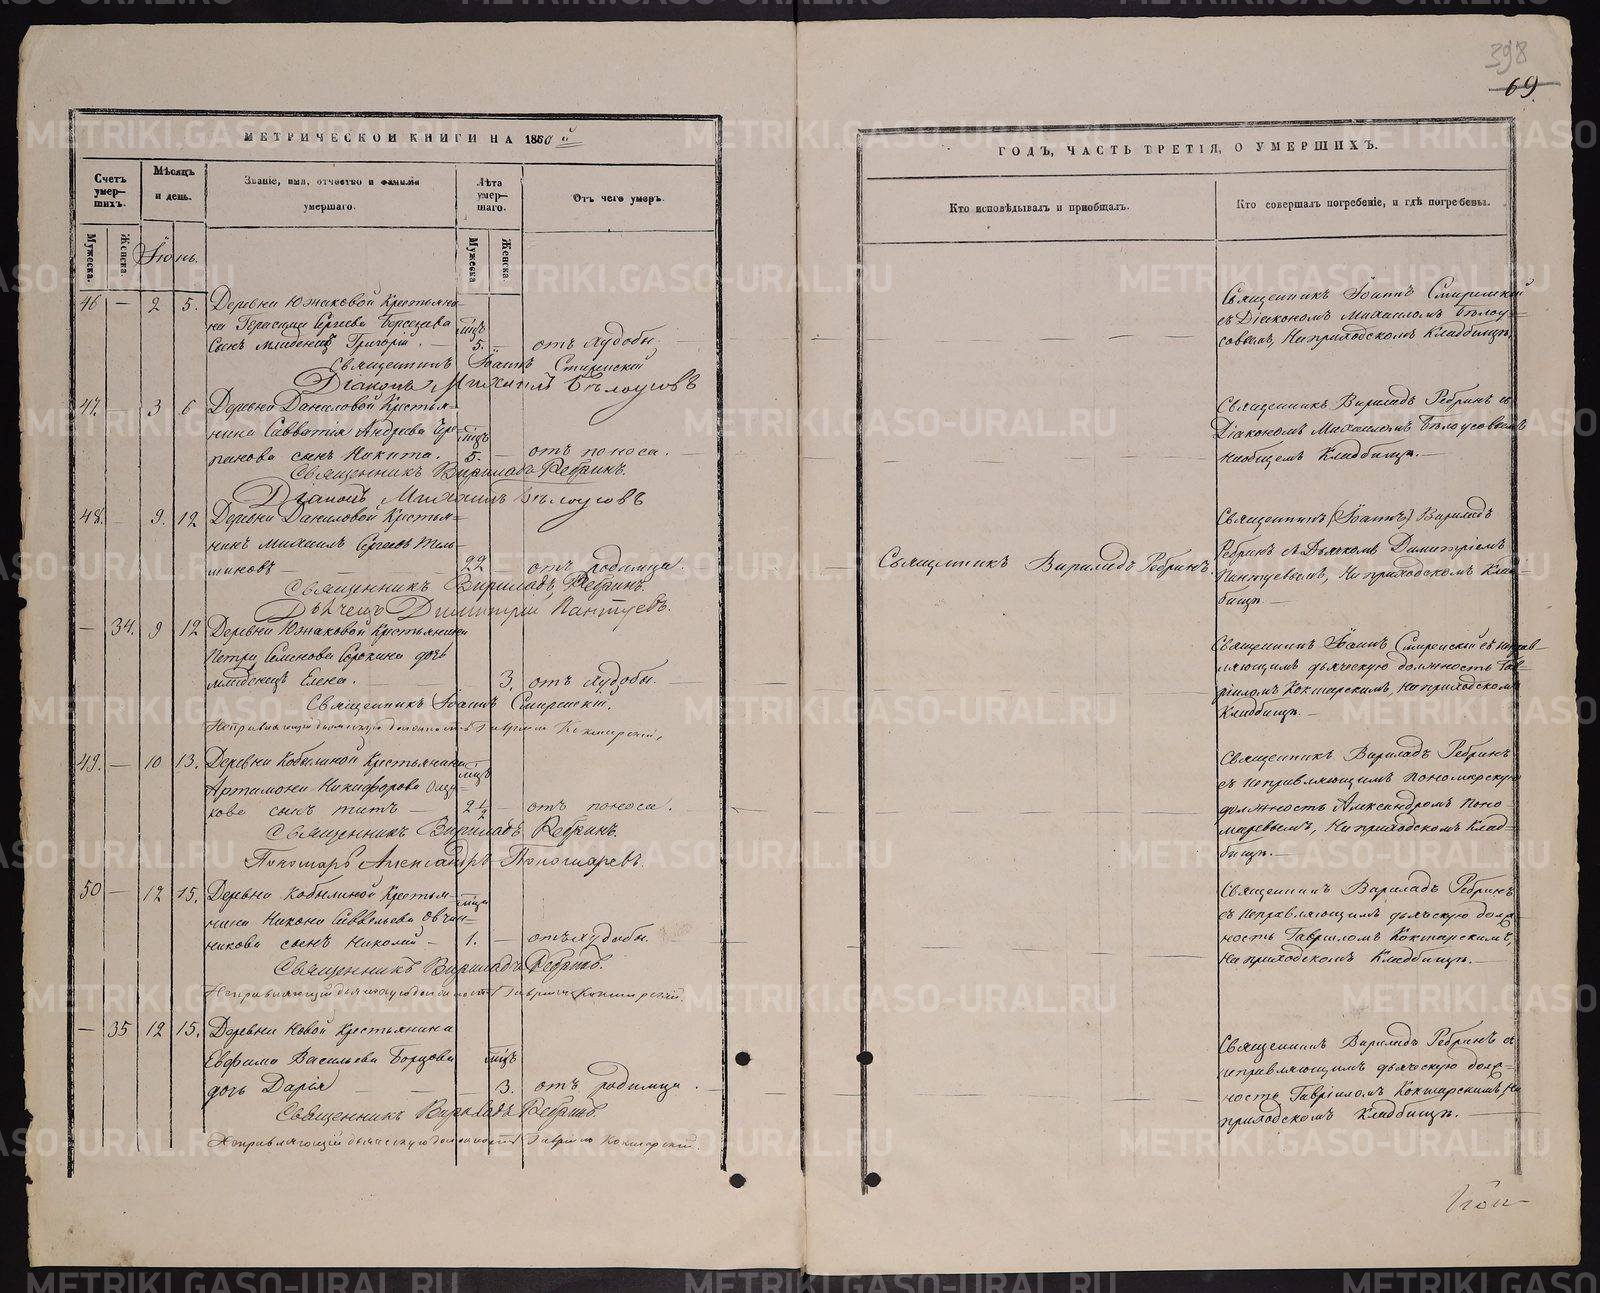 398
69.
МЕТРИЧЕСКОЙ КНИГИ НА 1860й
ГОДЪ, ЧАСТЬ ТРЕТІЯ, О УМЕРШИХЪ.
Счетъ умер-шихъ.
Мѣсяцъ и день.
Званіе, имя, отчество и фамилія умершаго.
Лѣта умер-шаго.
Отъ чего умеръ.
Кто исповѣдывалъ и пріобщалъ.
Кто совершалъ погребеніе, и гдѣ погребены.
Мужеска.
Женска.
Іюнь.
Мужеска
Женска.
46 — 2 5. Деревни Южаковой Крестьяни-
на Герасима Сергеева
сынъ младенецъ Григорій. — 5. — отъ худобы
Священникъ Іоаннъ Смиренскій
Діаконъ Михаилъ Бѣлоусовъ
Священникъ Іоаннъ Смиренскій
съ Діакономъ Михаиломъ Бѣлоу-
совымъ, На приходскомъ Кладбищѣ.
47. 3 6 Деревни Даниловой Крестья-
нина Савватія Андреева Чере-
панова сынъ Никита. 5. — отъ поноса. —
Священникъ Вириладъ Ребринъ.
Діаконъ Михаилъ Бѣлоусовъ
Священникъ Вириладъ Ребринъ съ
Діакономъ Михаиломъ Бѣлоусовымъ
Наобщемъ Кладбищѣ. —
48. 9. 12 Деревни Даниловой Крестья-
нинъ Михаилъ Сергеевъ
22 — отъ родимца.
Священникъ Вириладъ Ребринъ.
Дьячекъ Димитрій Пантуевъ.
Священникъ Вириладъ Ребринъ.
Священникъ (Іоаннъ) Вириладъ
Ребринъ съ Дьячкомъ Димитріемъ
Пантуевымъ, На приходскомъ Клад-
бищѣ. —
— 34. 9 12 Деревни Южаковой Крестьянина
Петра Семенова Сорокина дочь
младенецъ Елена. 3. отъ худобы.
Священникъ Іоаннъ Смиренскій.
Исправляющій дьяческую должность Гавріилъ Кокшарскій,
Священникъ Іоаннъ Смиренскій съ исправ-
ляющимъ дьяческую должность Гав-
ріиломъ Кокшарскимъ, На приходскомъ
Кладбищѣ. —
49. — 10 13. Деревни Кобылиной Крестьянина
Артамона Никифорова
кова сынъ Титъ — 2½ — отъ поноса.
Священникъ Вириладъ Ребринъ.
Пономарь Александръ Пономаревъ.
Священникъ Вириладъ Ребринъ
съ исправляющимъ пономарскую
должность Александромъ Поно-
маревымъ, На приходскомъ Клад-
бищѣ. —
50 — 12 15. Деревни Кобылиной Крестья-
нина Никона Савельева Овчин-
никова сынъ Николай — 1. — отъ худобы.
Священникъ Вириладъ Ребринъ.
Исправляющій дьяческую должность Гавріилъ Кокшарскій.
Священникъ Вириладъ Ребринъ
съ исправляющимъ дьяческую долж-
ность Гавріиломъ Кокшарскимъ,
На приходскомъ Кладбищѣ. —
— 35 12 15. Деревни Новой Крестьянина
Евфима Васильева Борцова
дочь Дарія — 3. отъ родимца.
Священникъ Вириладъ Ребринъ
Исправляющій дьяческую должность Гавріилъ Кокшарскій.
Священникъ Вириладъ Ребринъ съ
исправляющимъ дьяческую долж-
ность Гавріиломъ Кокшарскимъ, На
приходскомъ Кладбищѣ. —
METRIKI.GASO-URAL.RU